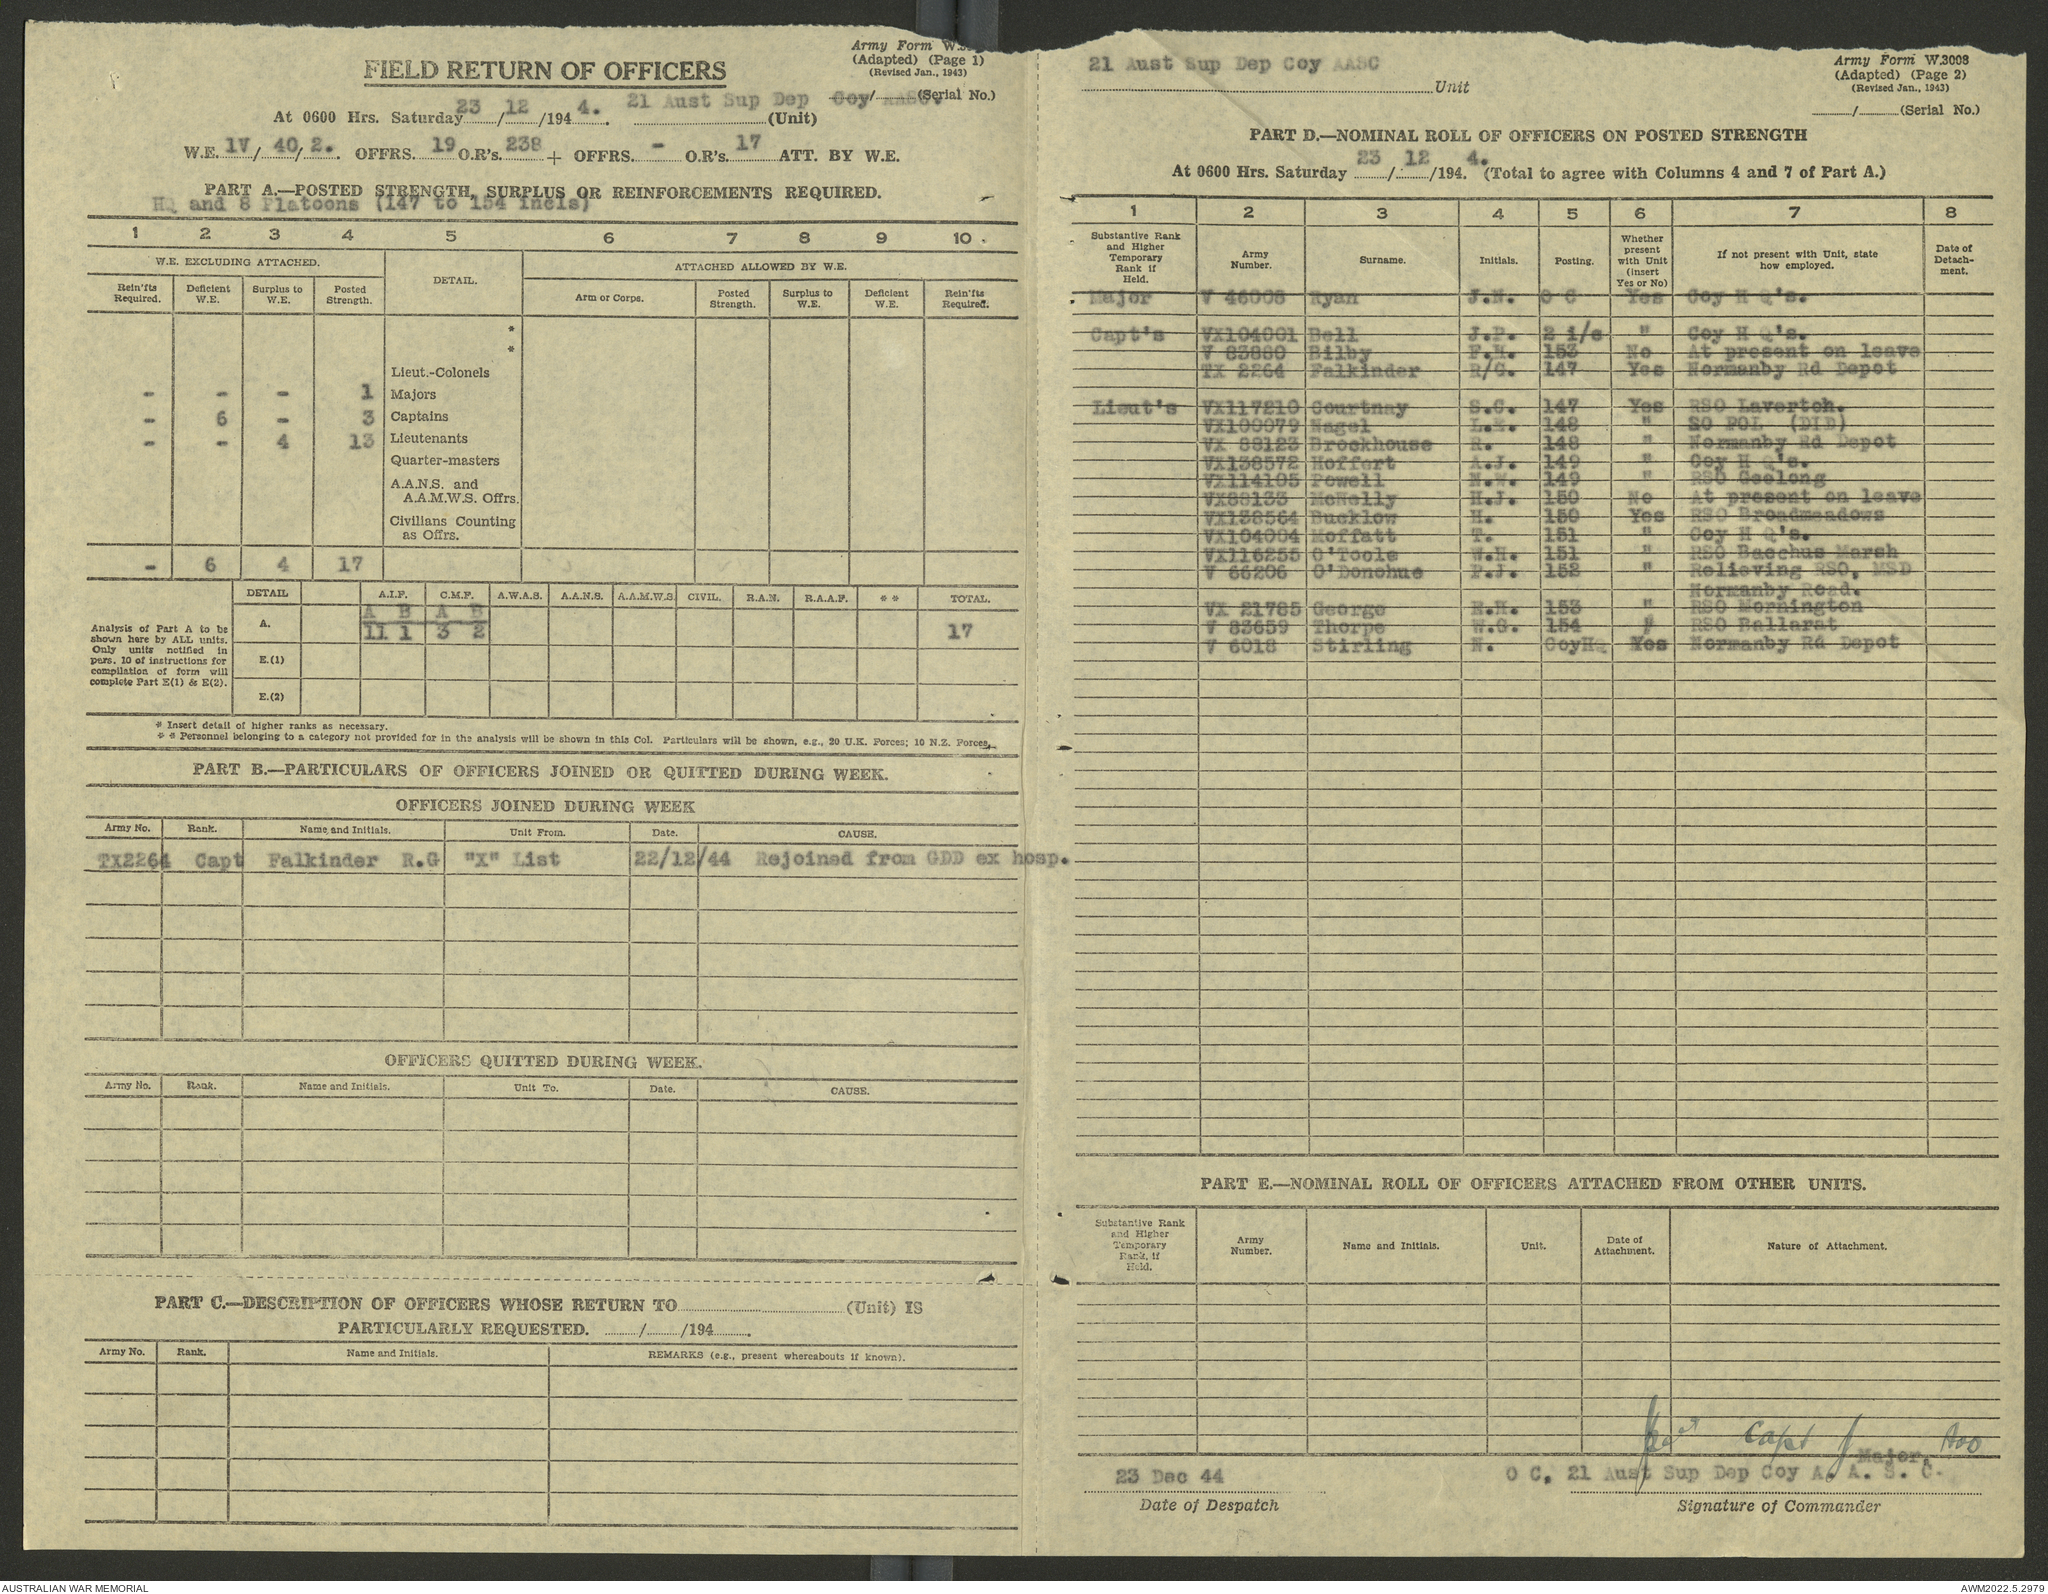 Army Form W.
(Adapted) (Page 1)
(Revised Jan., 1943)
FIELD RETURN OF OFFICERS
....../......(Serial No.)
At 0600 Hrs. Saturday 23/12/194 4. 21 Aust Sup Dep Coy AASC. (Unit)
W.E. 1V/40/2. OFFRS. 19 O.R's. 238 + OFFRS. - O.R's. 17 ATT. BY W.E.
PART A.—POSTED STRENGTH, SURPLUS OR REINFORCEMENTS REQUIRED.
HQ and 8 Platoons (147 to 154 incls)
1 2 3 4 5 6 7 8 9 10
W.E. EXCLUDING ATTACHED. DETAIL. ATTACHED ALLOWED BY W.E.
Rein'fts Required. Deficient W.E. Surplus to W.E. Posted Strength. Arm or Corps. Posted Strength. Surplus to W.E. Deficient W.E. Rein'fts Required.
*
*
Lieut.-Colonels
- - - 1 Majors
- 6 - 3 Captains
- - 4 13 Lieutenants
Quarter-masters
A.A.N.S. and
A.A.M.W.S. Offrs.
Civilians Counting
as Offrs.
- 6 4 17
DETAIL A.I.F. C.M.F. A.W.A.S. A.A.N.S. A.A.M.W.S. CIVIL. R.A.N. R.A.A.F. * * TOTAL.
Analysis of Part A to be shown here by ALL units. Only units notified in para. 10 of instructions for compilation of form will complete Part E(1) & E(2).
A B A B
A. 11 1 3 2 17
E.(1)
E.(2)
* Insert detail of higher ranks as necessary.
* * Personnel belonging to a category not provided for in the analysis will be shown in this Col. Particulars will be shown, e.g., 20 U.K. Forces; 10 N.Z. Forces.
PART B.—PARTICULARS OF OFFICERS JOINED OR QUITTED DURING WEEK.
OFFICERS JOINED DURING WEEK
Army No. Rank. Name and Initials. Unit From. Date. CAUSE.
TX2264 Capt Falkinder R.G "X" List 22/12/44 Rejoined from GDD ex hosp.
OFFICERS QUITTED DURING WEEK.
Army No. Rank. Name and Initials. Unit To. Date. CAUSE.
PART C.—DESCRIPTION OF OFFICERS WHOSE RETURN TO ............ (Unit) IS
PARTICULARLY REQUESTED. ....../....../194......
Army No. Rank. Name and Initials. REMARKS (e.g., present whereabouts if known).
21 Aust Sup Dep Coy AASC Unit
Army Form W.3008
(Adapted) (Page 2)
(Revised Jan., 1943)
....../......(Serial No.)
PART D.—NOMINAL ROLL OF OFFICERS ON POSTED STRENGTH
At 0600 Hrs. Saturday 23/12/194 4. (Total to agree with Columns 4 and 7 of Part A.)
1 2 3 4 5 6 7 8
Substantive Rank and Higher Temporary Rank if Held. Army Number. Surname. Initials. Posting. Whether present with Unit (insert Yes or No) If not present with Unit, state how employed. Date of Detachment.
Major V 46008 Ryan J.N. O C Yes Coy H Q's.
Capt's VX104001 Bell J.P. 2 i/c " Coy H Q's.
V 83880 Bilby F.H. 153 No At present on leave
TX 2264 Falkinder R/G. 147 Yes Normanby Rd Depot
Lieut's VX117210 Courtnay S.C. 147 Yes RSO Laverton.
VX100079 Nagel L.E. 148 " SO POL (DID)
VX 88123 Brockhouse R. 148 " Normanby Rd Depot
VX138572 Hoffert A.J. 149 " Coy H Q's.
VX114105 Powell N.W. 149 " RSO Geelong
VX88133 McNelly H.J. 150 No At present on leave
VX138564 Bucklow H. 150 Yes RSO Broadmeadows
VX104004 Moffatt T. 151 " Coy H Q's.
VX116255 O'Toole W.H. 151 " RSO Bacchus Marsh
V 66206 O'Donohue P.J. 152 " Relieving RSO, MSD
Normanby Road.
VX 21785 George R.H. 153 " RSO Mornington
V 83659 Thorpe W.G. 154 " RSO Ballarat
V 6018 Stirling N. CoyHQ Yes Normanby Rd Depot
PART E.—NOMINAL ROLL OF OFFICERS ATTACHED FROM OTHER UNITS.
Substantive Rank and Higher Temporary Rank, if Held. Army Number. Name and Initials. Unit. Date of Attachment. Nature of Attachment.
Capt
Major,
23 Dec 44 O C, 21 Aust Sup Dep Coy A. A. S. C.
Date of Despatch Signature of Commander
AUSTRALIAN WAR MEMORIAL AWM2022.5.2979